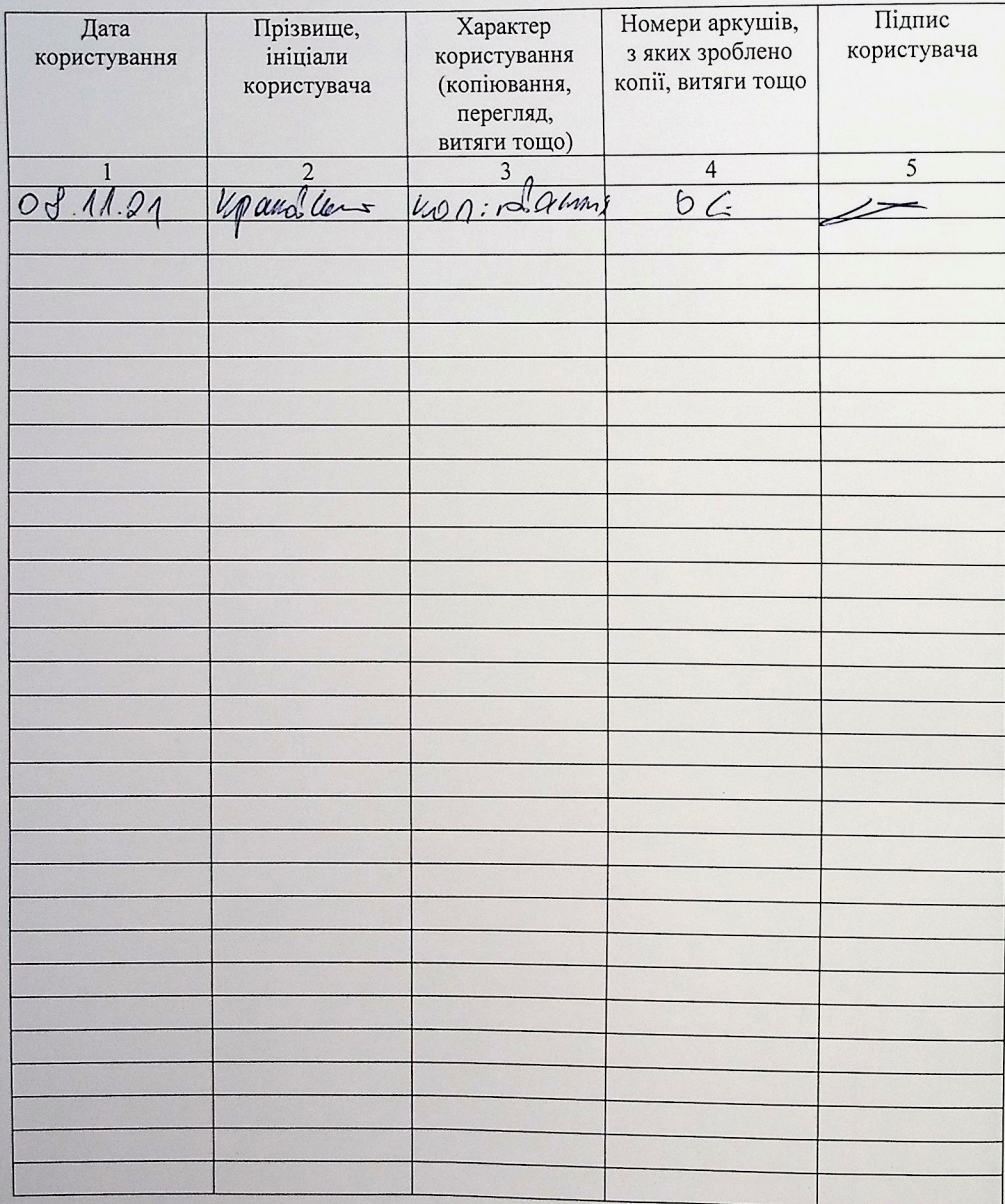 Дата користування
Прізвище, ініціали користувача
Характер користування (копіювання, перегляд, витяги тощо)
Номери аркушів, з яких зроблено копії, витяги тощо
Підпис користувача
1 2 3 4 5
08.11.21 копіювання